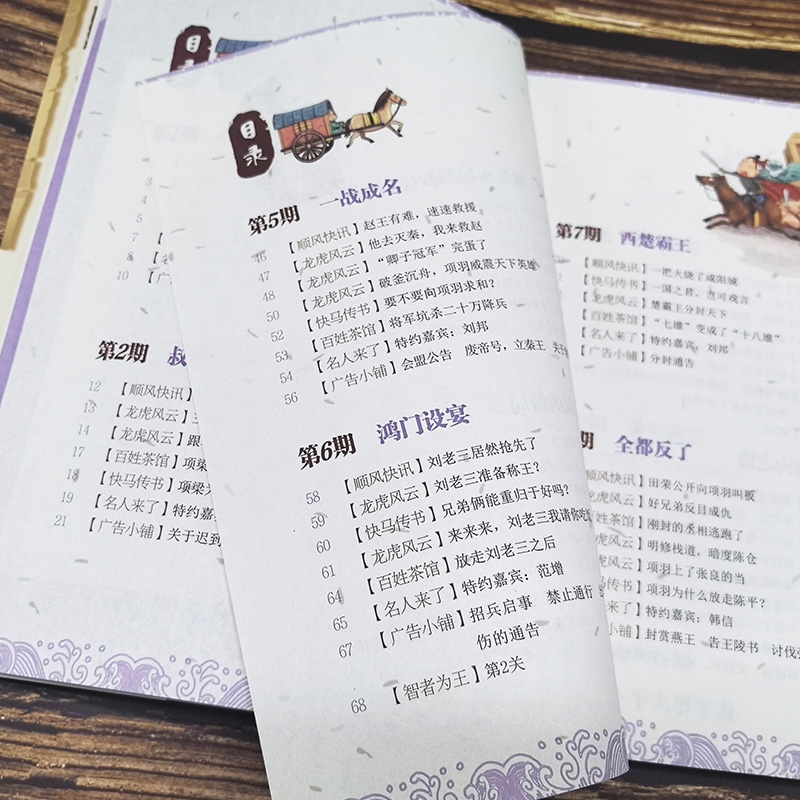 目录
3
4
5
7
8
10
第2期 叔
12 【顺风快讯】
13 【龙虎风云】
14 【龙虎风云】跟
17 【百姓茶馆】项梁
18 【快马传书】项梁
19 【名人来了】特约嘉
21 【广告小铺】关于迟到
目录
第5期 一战成名
46 【顺风快讯】赵王有难，速速救援
47 【龙虎风云】他去灭秦，我来救赵
48 【龙虎风云】“卿子冠军”完蛋了
50 【龙虎风云】破釜沉舟，项羽威震天下英雄
52 【快马传书】要不要向项羽求和？
53 【百姓茶馆】将军坑杀二十万降兵
54 【名人来了】特约嘉宾：刘邦
56 【广告小铺】会盟公告 废帝号，立秦王
第6期 鸿门设宴
58 【顺风快讯】刘老三居然抢先了
59 【龙虎风云】刘老三准备称王？
60 【快马传书】兄弟俩能重归于好吗？
61 【龙虎风云】来来来，刘老三我请你吃
64 【百姓茶馆】放走刘老三之后
65 【名人来了】特约嘉宾：范增
67 【广告小铺】招兵启事 禁止通行
伤的通告
68 【智者为王】第2关
第7期 西楚霸王
【顺风快讯】一把火烧了咸阳城
【快马传书】一国之君，岂可戏言
【龙虎风云】楚霸王分封天下
【百姓茶馆】“七雄”变成了“十八雄”
【名人来了】特约嘉宾：刘邦
【广告小铺】分封通告
期 全都反了
顺风快讯】田荣公开向项羽叫板
龙虎风云】好兄弟反目成仇
百姓茶馆】刚封的丞相逃跑了
虎风云】明修栈道，暗度陈仓
风云】项羽上了张良的当
传书】项羽为什么放走陈平？
来了】特约嘉宾：韩信
小铺】封赏燕王 告王陵书 讨伐